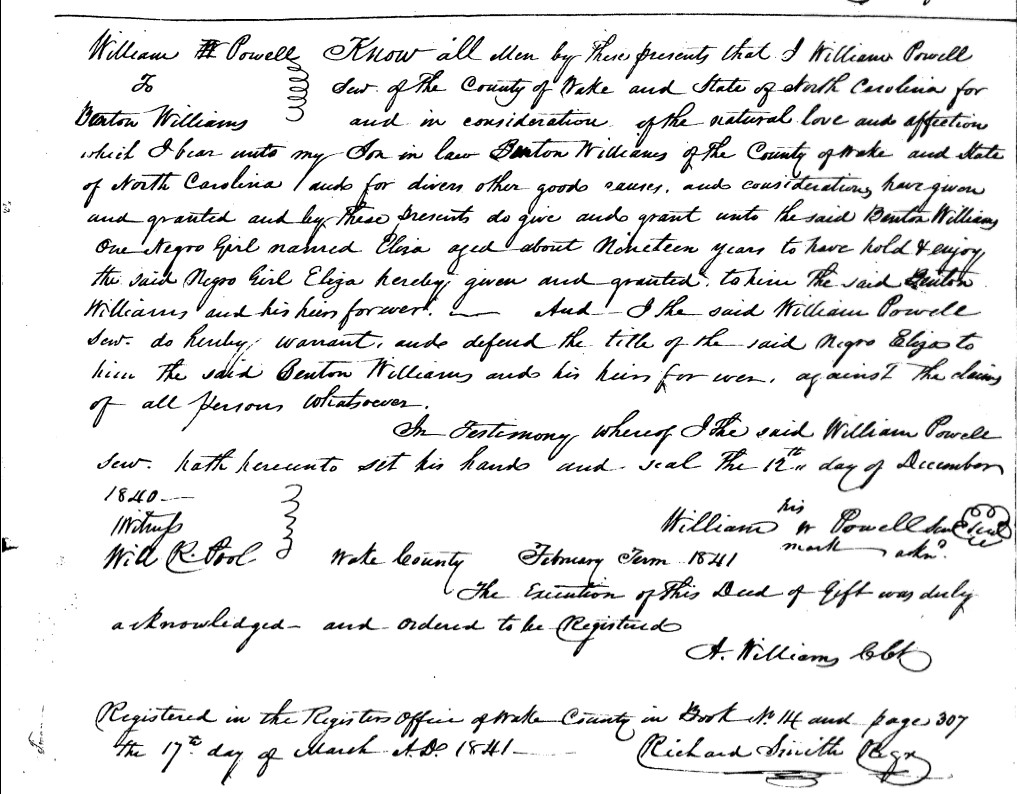 William Powell Know all Men by these presents that I William Powell
To Sen. of the County of Wake and State of North Carolina for
Benton Williams and in consideration of the natural love and affection
which I bear unto my Son in law Benton Williams of the County of Wake and State
of North Carolina and for divers other good causes, and considerations have given
and granted and by these presents do give and grant unto the said Benton Williams
One Negro Girl named Eliza aged about Nineteen years to have hold & enjoy
the said Negro Girl Eliza hereby given and granted to him the said Benton
Williams and his heirs forever. — And I the said William Powell
Sen. do hereby warrant, and defend the title of the said Negro Eliza to
him the said Benton Williams and his heirs for ever, against the claims
of all persons whatsoever.
In Testimony whereof I the said William Powell
Sen. hath hereunto set his hand and seal the 12th day of December
1840 —
his
Witness William W Powell Sen Seal
mark ackn.
Will R. Pool Wake County February Term 1841
The Execution of this Deed of Gift was duly
acknowledged and ordered to be Registered
A. Williams Clk
Registered in the Registers Office of Wake County in Book No 14 and page 307
the 17th day of March A.D. 1841 Richard Smith Regr